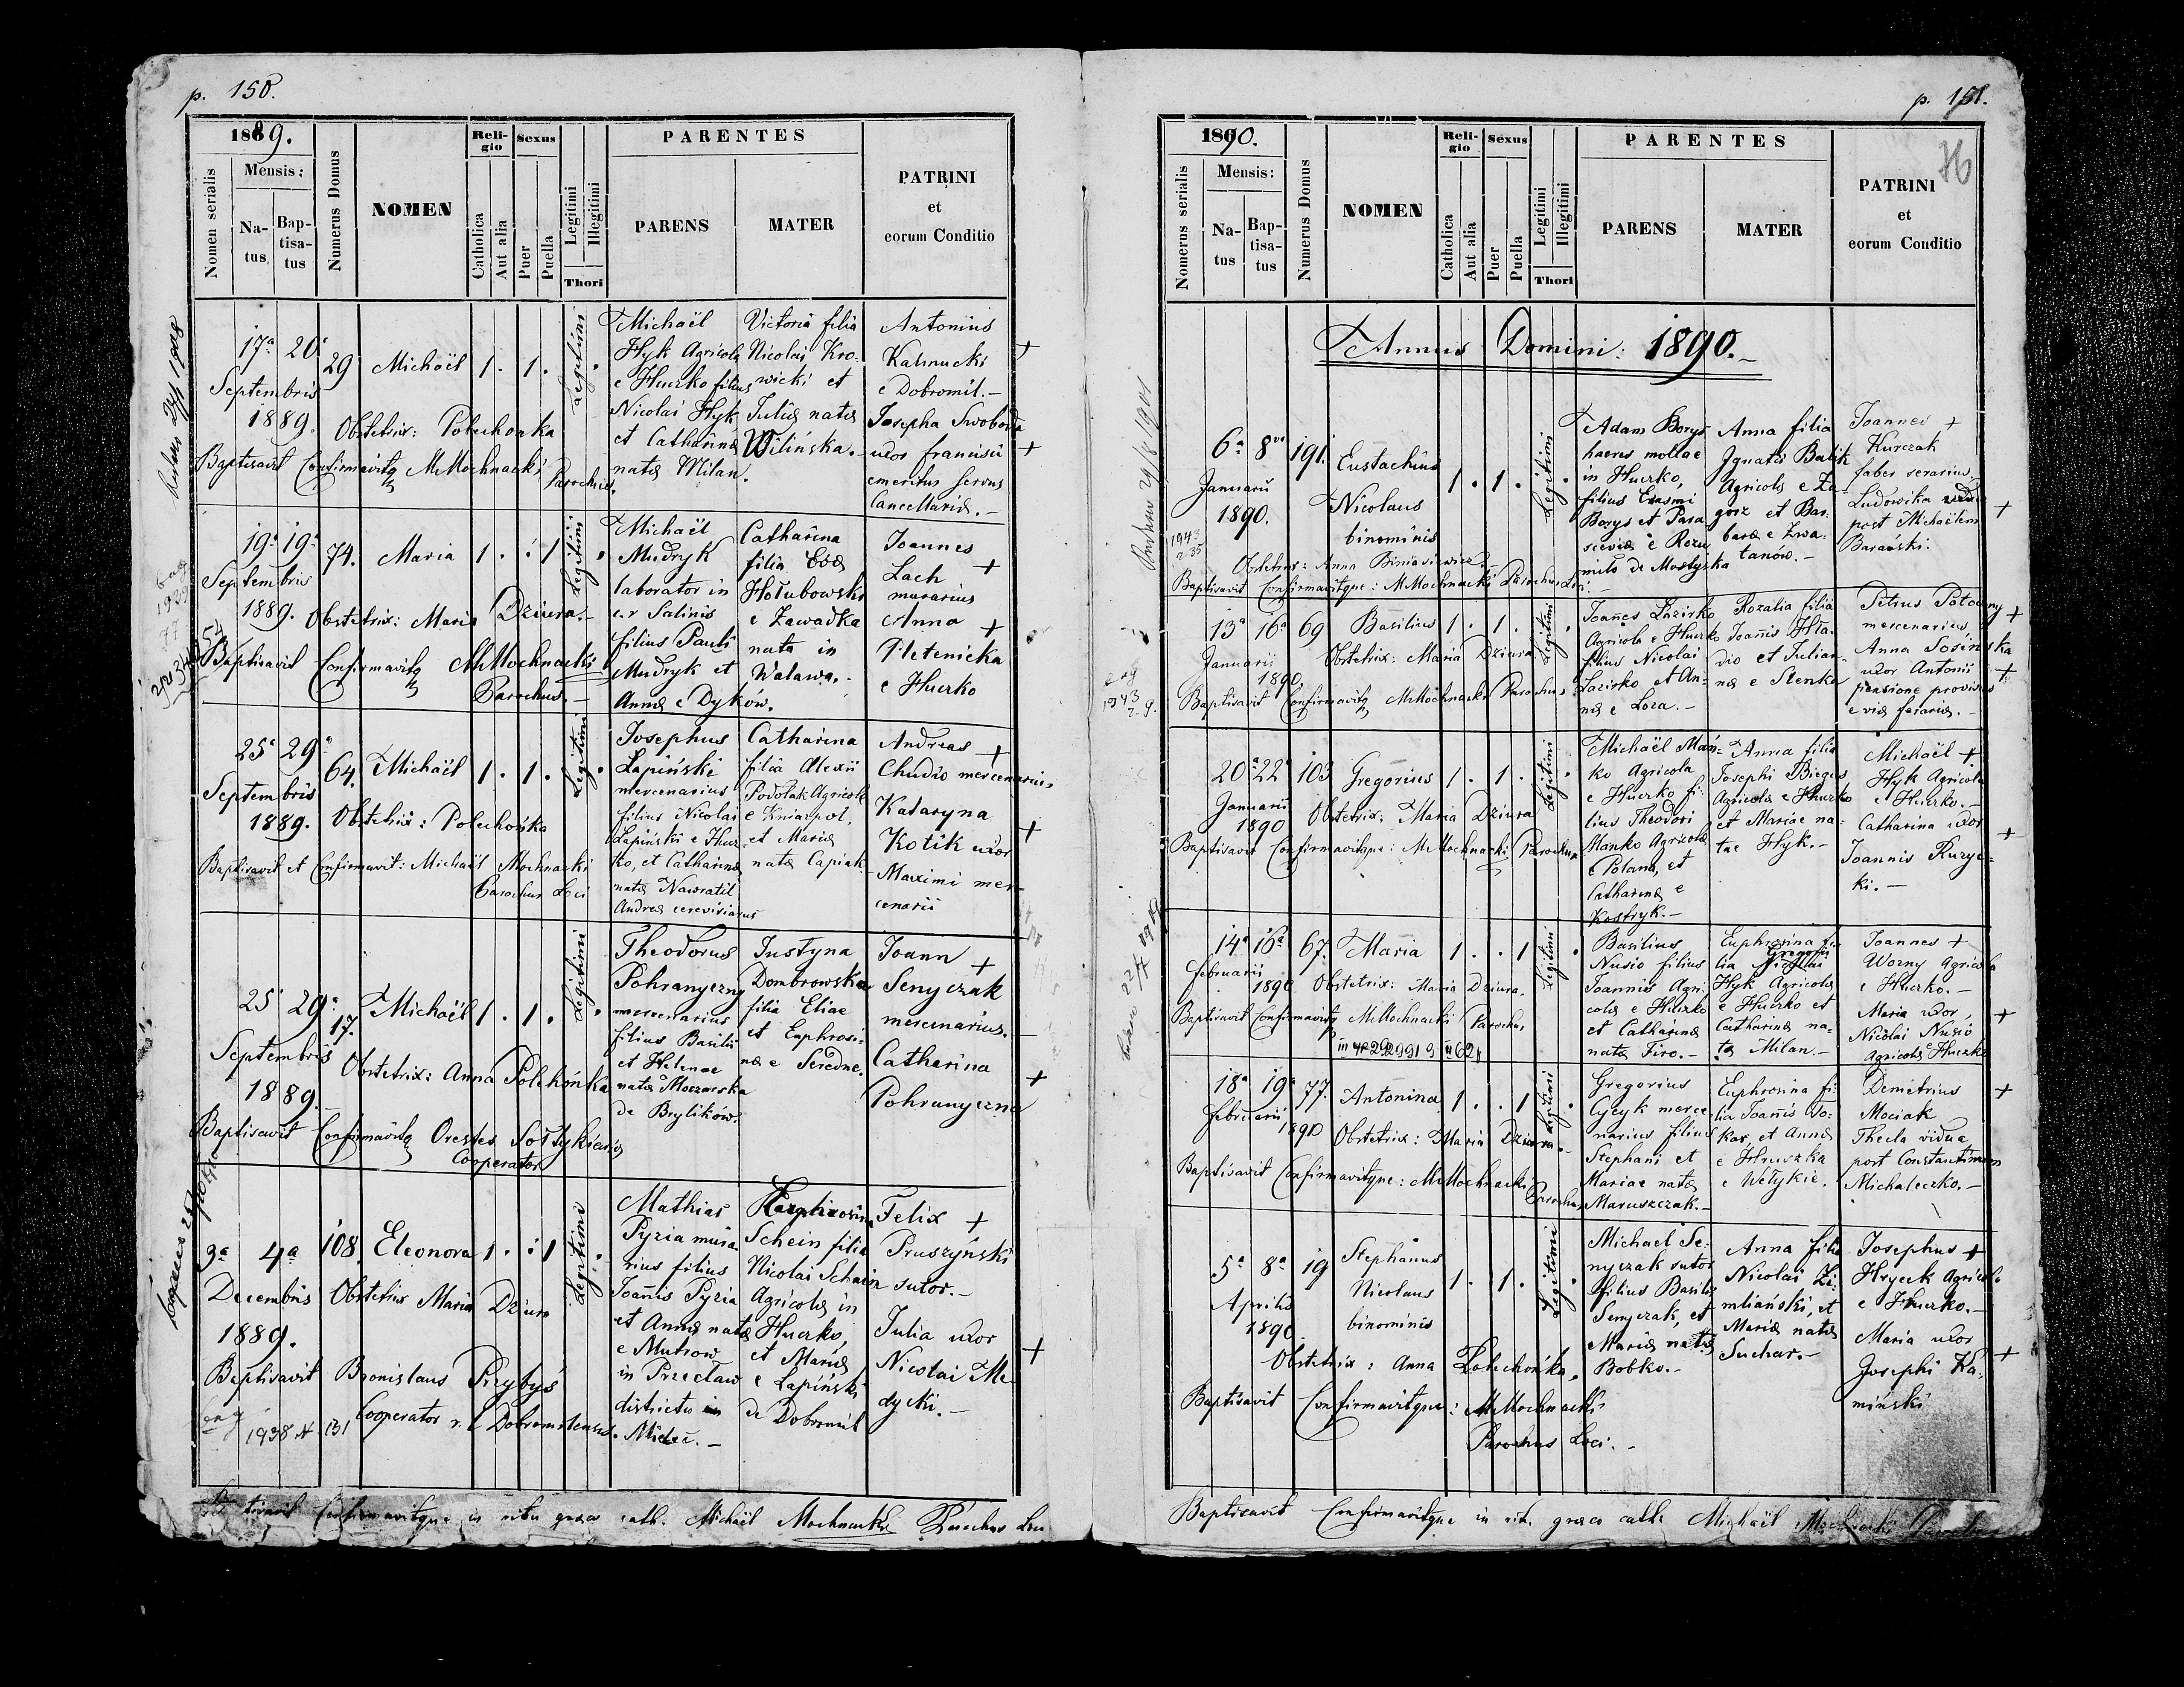 p. 150.
1889.
Nomen serialis
Mensis:
Na-
tus
Bap-
tisa-
tus
Numerus Domus
NOMEN
Reli-
gio
Catholica
Aut alia
Sexus
Puer
Puella
Legitimi
Illegitimi
Thori
PARENTES
PARENS
MATER
PATRINI
et
eorum Conditio
17ª 20ª
Septembris
1889.
29
Michaël
1 . 1 .
Legitimi
Michaël
Hyk Agricola
e Huczko filius
Nicolai Hyk
et Catharina
nata Milan.
Victoria filia
Nicolai Kro-
wicki et
Julia nata
Wilińska.-
Antonius +
Kalmucki
e Dobromil.-
Josepha Swoboda
uxor francisci +
emeritus servus
Cancellariæ.-
Obstetrix: Polechońka
Baptisavit Confirmavitq MMochnacki
Parochus.
19ª 19ª
Septembris
1889.
74.
Maria
1 . : 1
Legitimi
Michaël
Mudryk
laborator in
c.r Salinis
filius Pauli
Mudryk et
Anna e Dyków.
Catharina
filia Evæ
Hołubowski
e Zawadka
nata in
Walawa.-
Joannes
Lach +
murarius
Anna +
Pletenicka
e Huczko
Obstetrix: Maria Dziura.-
Baptisavit Confirmavitq MMochnacki
Parochus.-
25ª 29ª
Septembris
1889.
64.
Michaël
1 . 1 .
Legitimi
Josephus
Łapiński
mercenarius
filius Nicolai
Łapiński e Hucz-
ko, et Catharina
nata Nawratil
Andreæ cerevisiarius
Catharina
filia Alexii
Podolak Agricolæ
e Kniazpol,
et Mariæ
nata Capiak
Andreas +
Chudio mercenarius
Kataryna
Kotik uxor +
Maximi mer-
cenarii
Obstetrix: Polechońka
Baptisavit et Confirmavit: Michaël Mochnacki
Parochus Loci
25ª 29ª
Septembris
1889.
17.
Michaël
1 . 1 .
Legitimi
Theodorus
Pohranyczny
mercenarius
filius Basilii
et Helenae
nata Moczarska
de Brylików.
Justyna
Dombrowska
filia Eliae
et Euphrosi-
næ e Seredne.
Joann +
Senyczak
mercenarius.
Catharina +
Pohranyczna
Obstetrix: Anna Polechońka
Baptisavit Confirmavitq Orestes Sołtykiewicz
Cooperator
3ª 4ª
Decembris
1889.
108.
Eleonora
1 . : 1
Legitimi
Mathias
Pyzia mura-
rius filius
Joannis Pyzia
et Anna nata
e Mutrow
in Przecław
districtu
Mielec.-
Euphrosina
Schein filia
Nicolai Schein
Agricolæ in
Huczko,
et Mariæ
e Łapiński
de Dobromil
Felix +
Pruszyński
sutor.-
Julia uxor +
Nicolai Me-
dycki.-
Obstetrix Maria Dziura
Baptisavit Bronislaus Przybyś
Cooperator r.l Dobromilensis.
1938 131
confirmavitque in ritu græco cath. Michaël Mochnacki Parochus Loci
p. 151.
76
1890.
Nomerus serialis
Mensis:
Na-
tus
Bap-
tisa-
tus
Numerus Domus
NOMEN
Reli-
gio
Catholica
Aut alia
Sexus
Puer
Puella
Legitimi
Illegitimi
Thori
PARENTES
PARENS
MATER
PATRINI
et
eorum Conditio
Annus Domini: 1890.-
6ª 8va
Januarii
1890.
191.
Eustachius
Nicolaus
binominis
1 . 1 .
Legitimi
Adam Borys
haeres mollae
in Huczko,
filius Erasmi
Borys et Para-
sceviæ e Rozu-
miło de Mostyska
Anna filia
Ignatii Balik
Agricolæ e Za-
gorz et Bar-
baræ e Zwa-
tanów.-
Joannes +
Kurczak
faber serarius,
Ludowika
post Michaëlem +
Barański.
1943
Obstetrix: Anna Biniasiewicz.-
Baptisavit Confirmavitque: MMochnacki Parochus Loci.-
13ª 16ª
Januarii
1890.
69
Basilius
1 . 1 .
Legitimi
Joañes Łazirko
Agricola e Huczko
filius Nicolai
Łazirko et An-
næ e Loza.-
Rozalia filia
Joañis Hła-
dio et Julian-
næ e Stenka
Petrus Potoczny +
mercenarius,
Anna Sosińska
uxor Antonii +
pensione provisus
e via feraria.-
Obstetrix: Maria Dziura
1943
Baptisavit Confirmavitq MMochnacki Parochus
20ª 22ª
Januarii
1890
103
Gregorius
1 . 1 .
Legitimi
Michaël Mań-
ko Agricola
e Huczko fi-
lius Theodori
Manko Agricolæ
e Polana, et
Catharina e
Kostryk.-
Anna filia
Josephi Biegus
Agricolæ e Huczko
et Mariae na-
tae Hyk.-
Michaël +
Hyk Agricola
e Huczko.-
Catharina uxor +
Joannis Ruryc-
ki.-
Obstetrix: Maria Dziura
Baptisavit Confirmavitque: MMochnacki Parochus
14ª 16ª
Februarii
1890
67.
Maria
1 . . 1
Legitimi
Basilius
Nusio filius
Joannis Agri-
colæ e Huczko
et Catharina
nata Firo.-
Euphrosina fi-
lia Gregorii
Hyk Agricolæ
e Huczko et
Catharinæ na-
tæ Milan.-
Joannes +
Worny Agricola
e Huczko.-
Maria uxor, +
Nicolai Nusio
Agricolæ e Huczko
Obstetrix: Maria Dziura.
Baptisavit Confirmavitq MMochnacki Parochus
18ª 19ª
Februarii
1890
77.
Antonina
1 . . 1
Legitimi
Gregorius
Cycyk merce-
narius filius
Stephani et
Mariae nata
Maruszczak.-
Euphrosina fi-
lia Joañis To-
kar, et Annæ
e Hruszka
e Wełykie.
Demetrius +
Mociak
Thecla vidua
post Constantinum
Michaleczko.-
Obstetrix: Maria Dziura.-
Baptisavit Confirmavitque: MMochnacki
Parochus
5ª 8ª
Aprilis
1890.
19
Stephanus
Nicolaus
binominis
1 . 1 .
Legitimi
Michael Se-
nyczak sutor
filius Basilii
Senyczak, et
Mariæ natæ
Bobko.-
Anna filia
Nicolai Zi-
mliański, et
Mariæ natæ
Suchar.-
Josephus +
Hrycek Agricola
e Huczko.-
Maria uxor +
Josephi Ka-
miński
Obstetrix: Anna Polechońka.
Baptisavit Confirmavitque: MMochnacki
Parochus Loci.-
Baptisavit Confirmavitque in ritu græco cath. Michaël Mochnacki Parochus